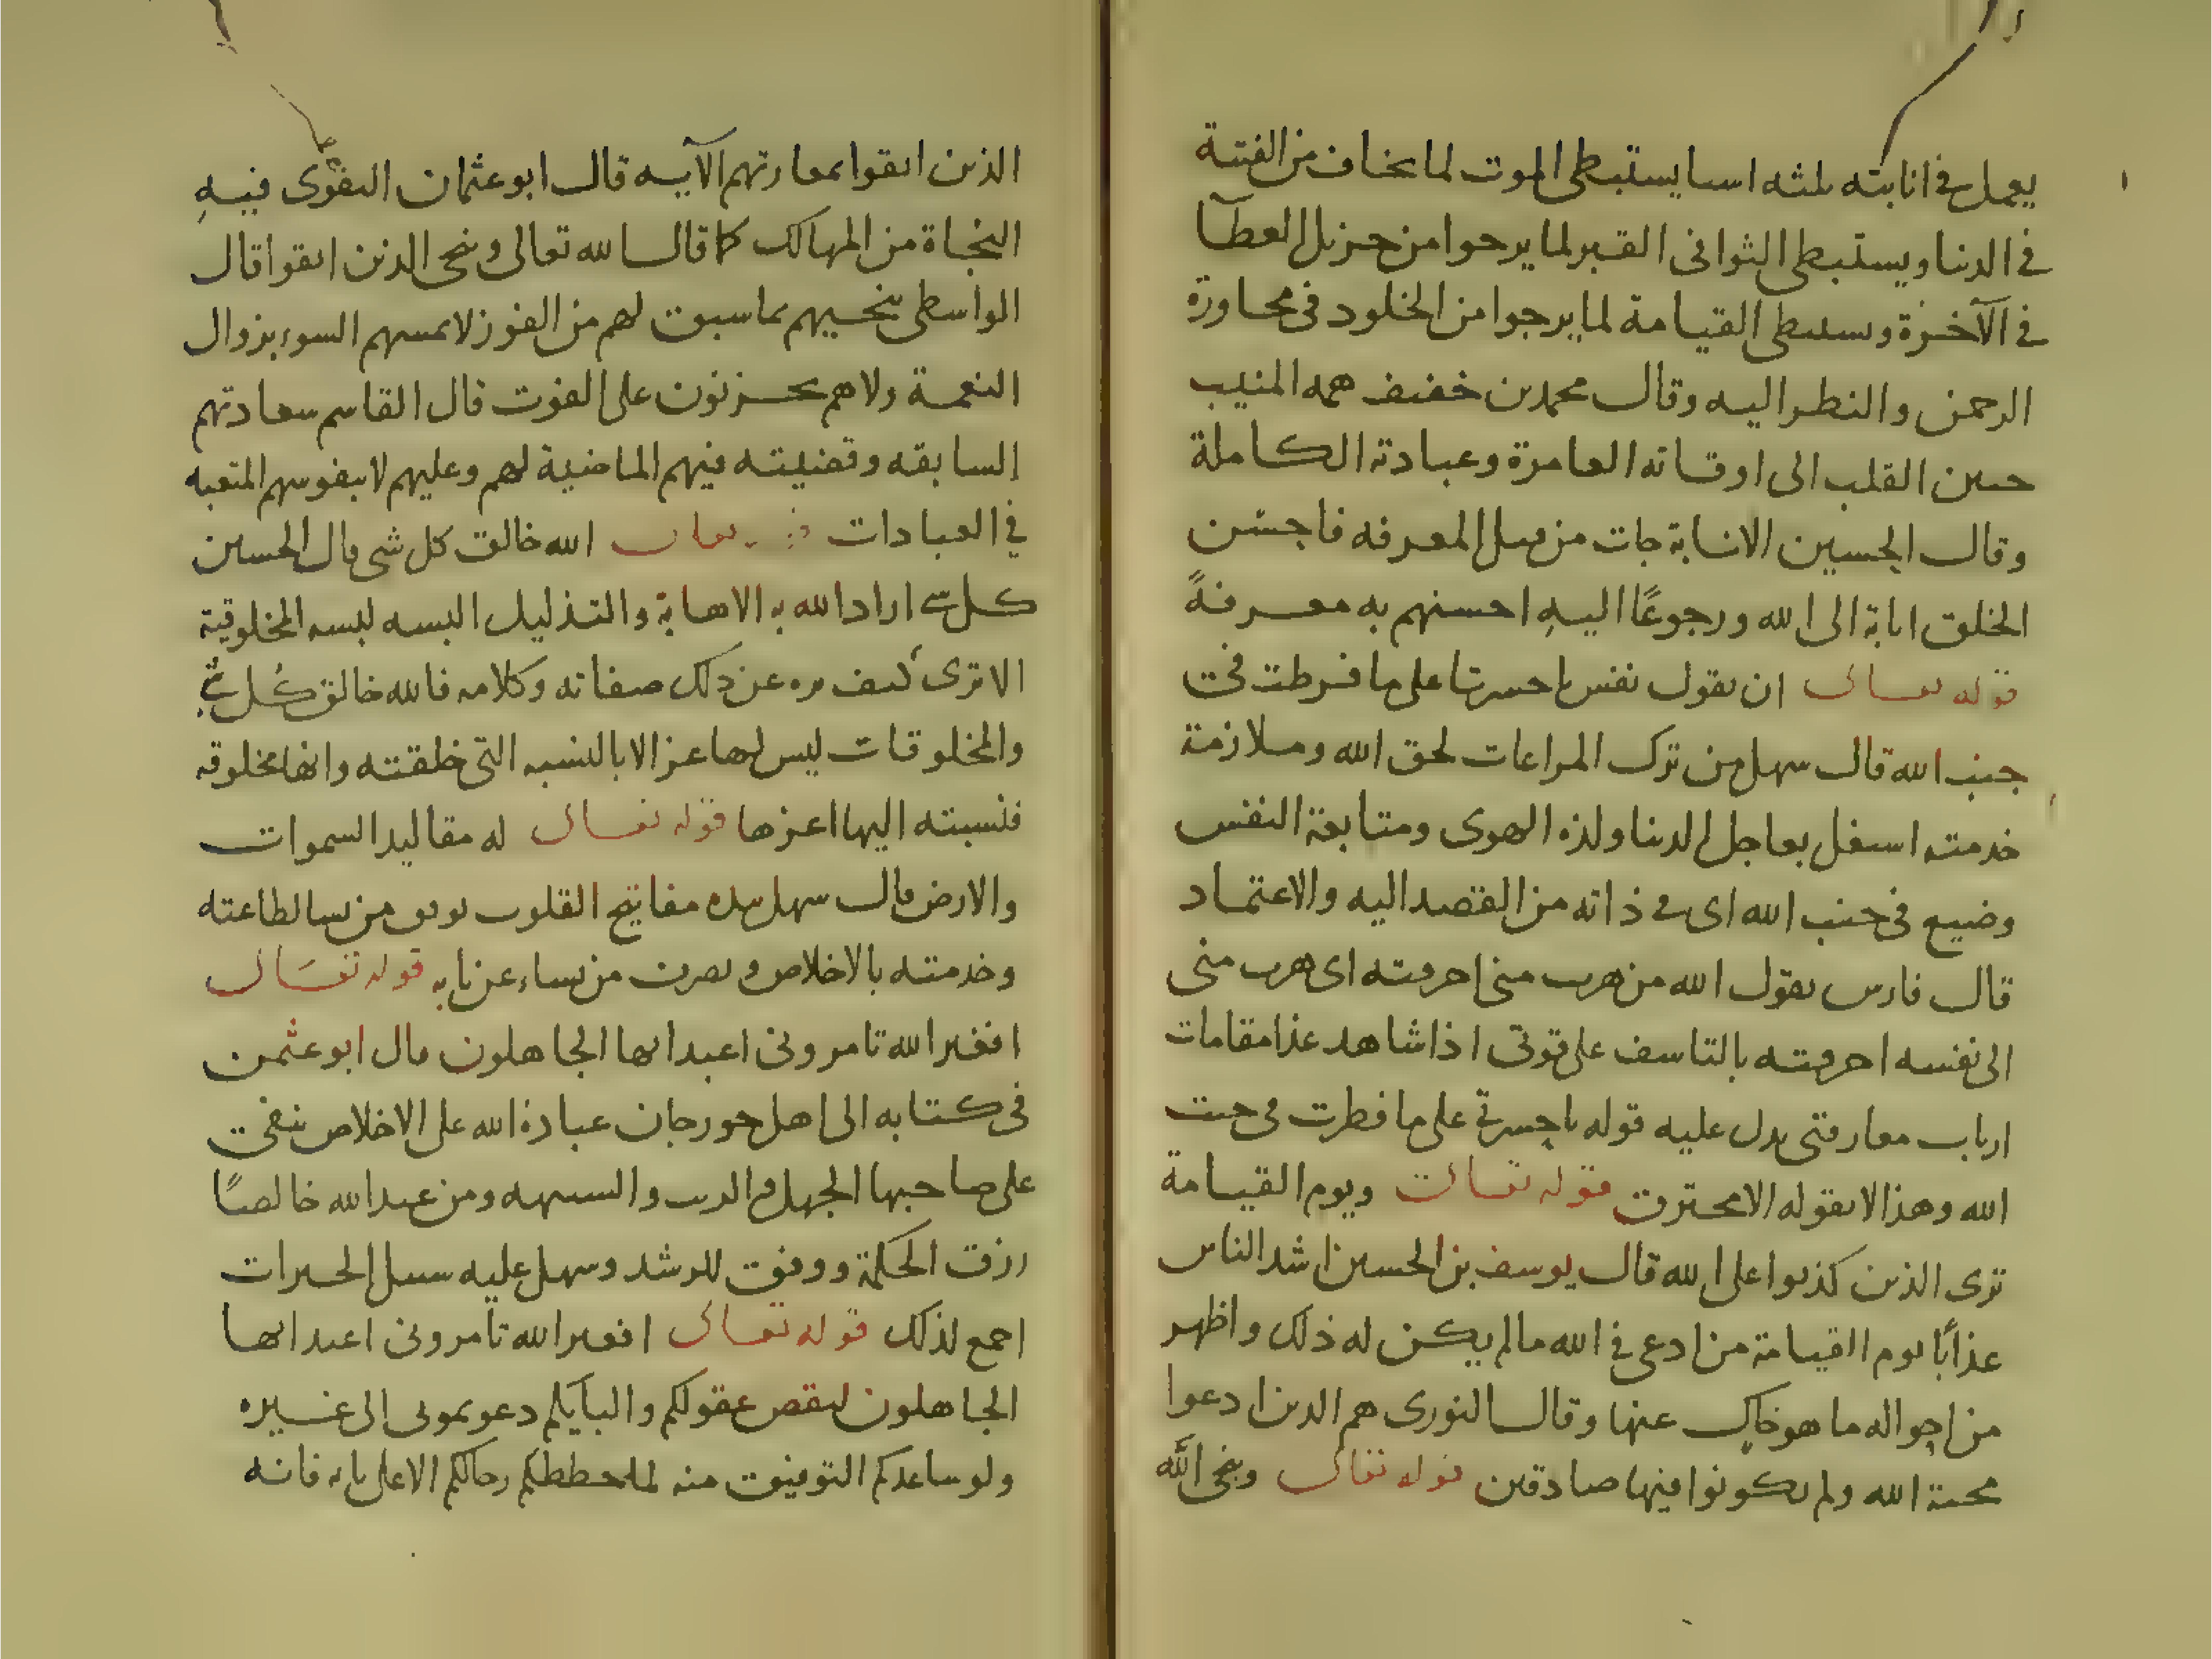 يعمل في انابته بلثه اسيا يستبطى الموت لما يخاف من الفتنة
في الدنيا ويستبطى الثوا فى القبر لما يرجوا من جزيل العطآ
في الآخرة ويستبطى القيامة لما يرجوا من الخلود فى مجاورة
الرحمن والنظر اليه وقال محمد بن خفيف همه المنيب
حنين القلب الى اوقاته العامرة وعبادته الكاملة
وقال الحسين الانابة جات من قبل المعرفه فاحسن
الخلق انابة الى الله ورجوعًا اليهِ احسنهم به معرفةً
قوله تعالى ان تقول نفس يا حسرتا على ما فرطت فى
جنب الله قال سهل من ترك المراعات لحق الله وملازمة
خدمته اشتغل بعاجل الدنيا ولذه الهوى ومتابعة النفس
وضيع فى جنب الله اى فى ذاته من القصد اليه والاعتماد
قال فارس يقول الله من هرب منى احرقته اى هرب منى
الى نفسه احرقته بالتاسف على فوتى اذا شاهد غدا مقامات
ارباب معارفتى يدل عليه قوله يا حسرتى على ما فطرت فى جنب
الله وهذا لا يقوله الا محترق قوله تعالى ويوم القيامة
ترى الذين كذبوا على الله قال يوسف بن الحسين اشد الناس
عذابًا يوم القيامة من ادعى في الله ما لم يكن له ذلك واظهر
من احواله ما هو خالٍ عنها وقال النورى هم الذين ادعوا
محبة الله ولم يكونوا فيها صادقين قوله تعالى وينجى الله
الذين اتقوا بمفازتهم الآيه قال ابو عثمان التقوى فيهِ
النجاة من المهالك كما قال الله تعالى وينجى الذين اتقوا قال
الواسطى ينجيهم بما سبق لهم من الفوز لا يمسهم السوء بزوال
النعمة ولا هم يحزنون على الفوت قال القاسم سعادتهم
السابقه وقضيته فيهم الماضية لهم وعليهم لا بنفوسهم المتعبه
في العبادات تعالى الله خالق كل شى قال الحسين
كل شى اراد الله به الاهانة والتذليل البسه لبسه المخلوقية
الا ترى كيف نزه عن ذلك صفاته وكلامه فالله خالق كُل شى
والمخلوقات ليس لها عز الا بالنسبه التى خلقته وانها مخلوقه
فنسبته اليها اعزها قوله تعالى له مقاليد السموات
والارض قال سهل بيده مفاتيح القلوب يوفق من يشا لطاعته
وخدمته بالاخلاص ويصرف من يشاء عن بابه قوله تعالى
افغير الله تامرونى اعبد ايها الجاهلون قال ابو عثمن
فى كتابه الى اهل جورجان عبادة الله على الاخلاص ينفى
على صاحبها الجهل والريب والشبهه ومن عبد الله خالصًا
رزق الحكمة ووفق للرشد وسهل عليه سبيل الخيرات
اجمع لذلك قوله تعالى افغير الله تامرونى اعبد ايها
الجاهلون لنقص عقولكم والبابكم دعوتمونى الى غيره
ولو ساعدكم التوفيق منه لما حططتم رحالكم الا على بابه فانه